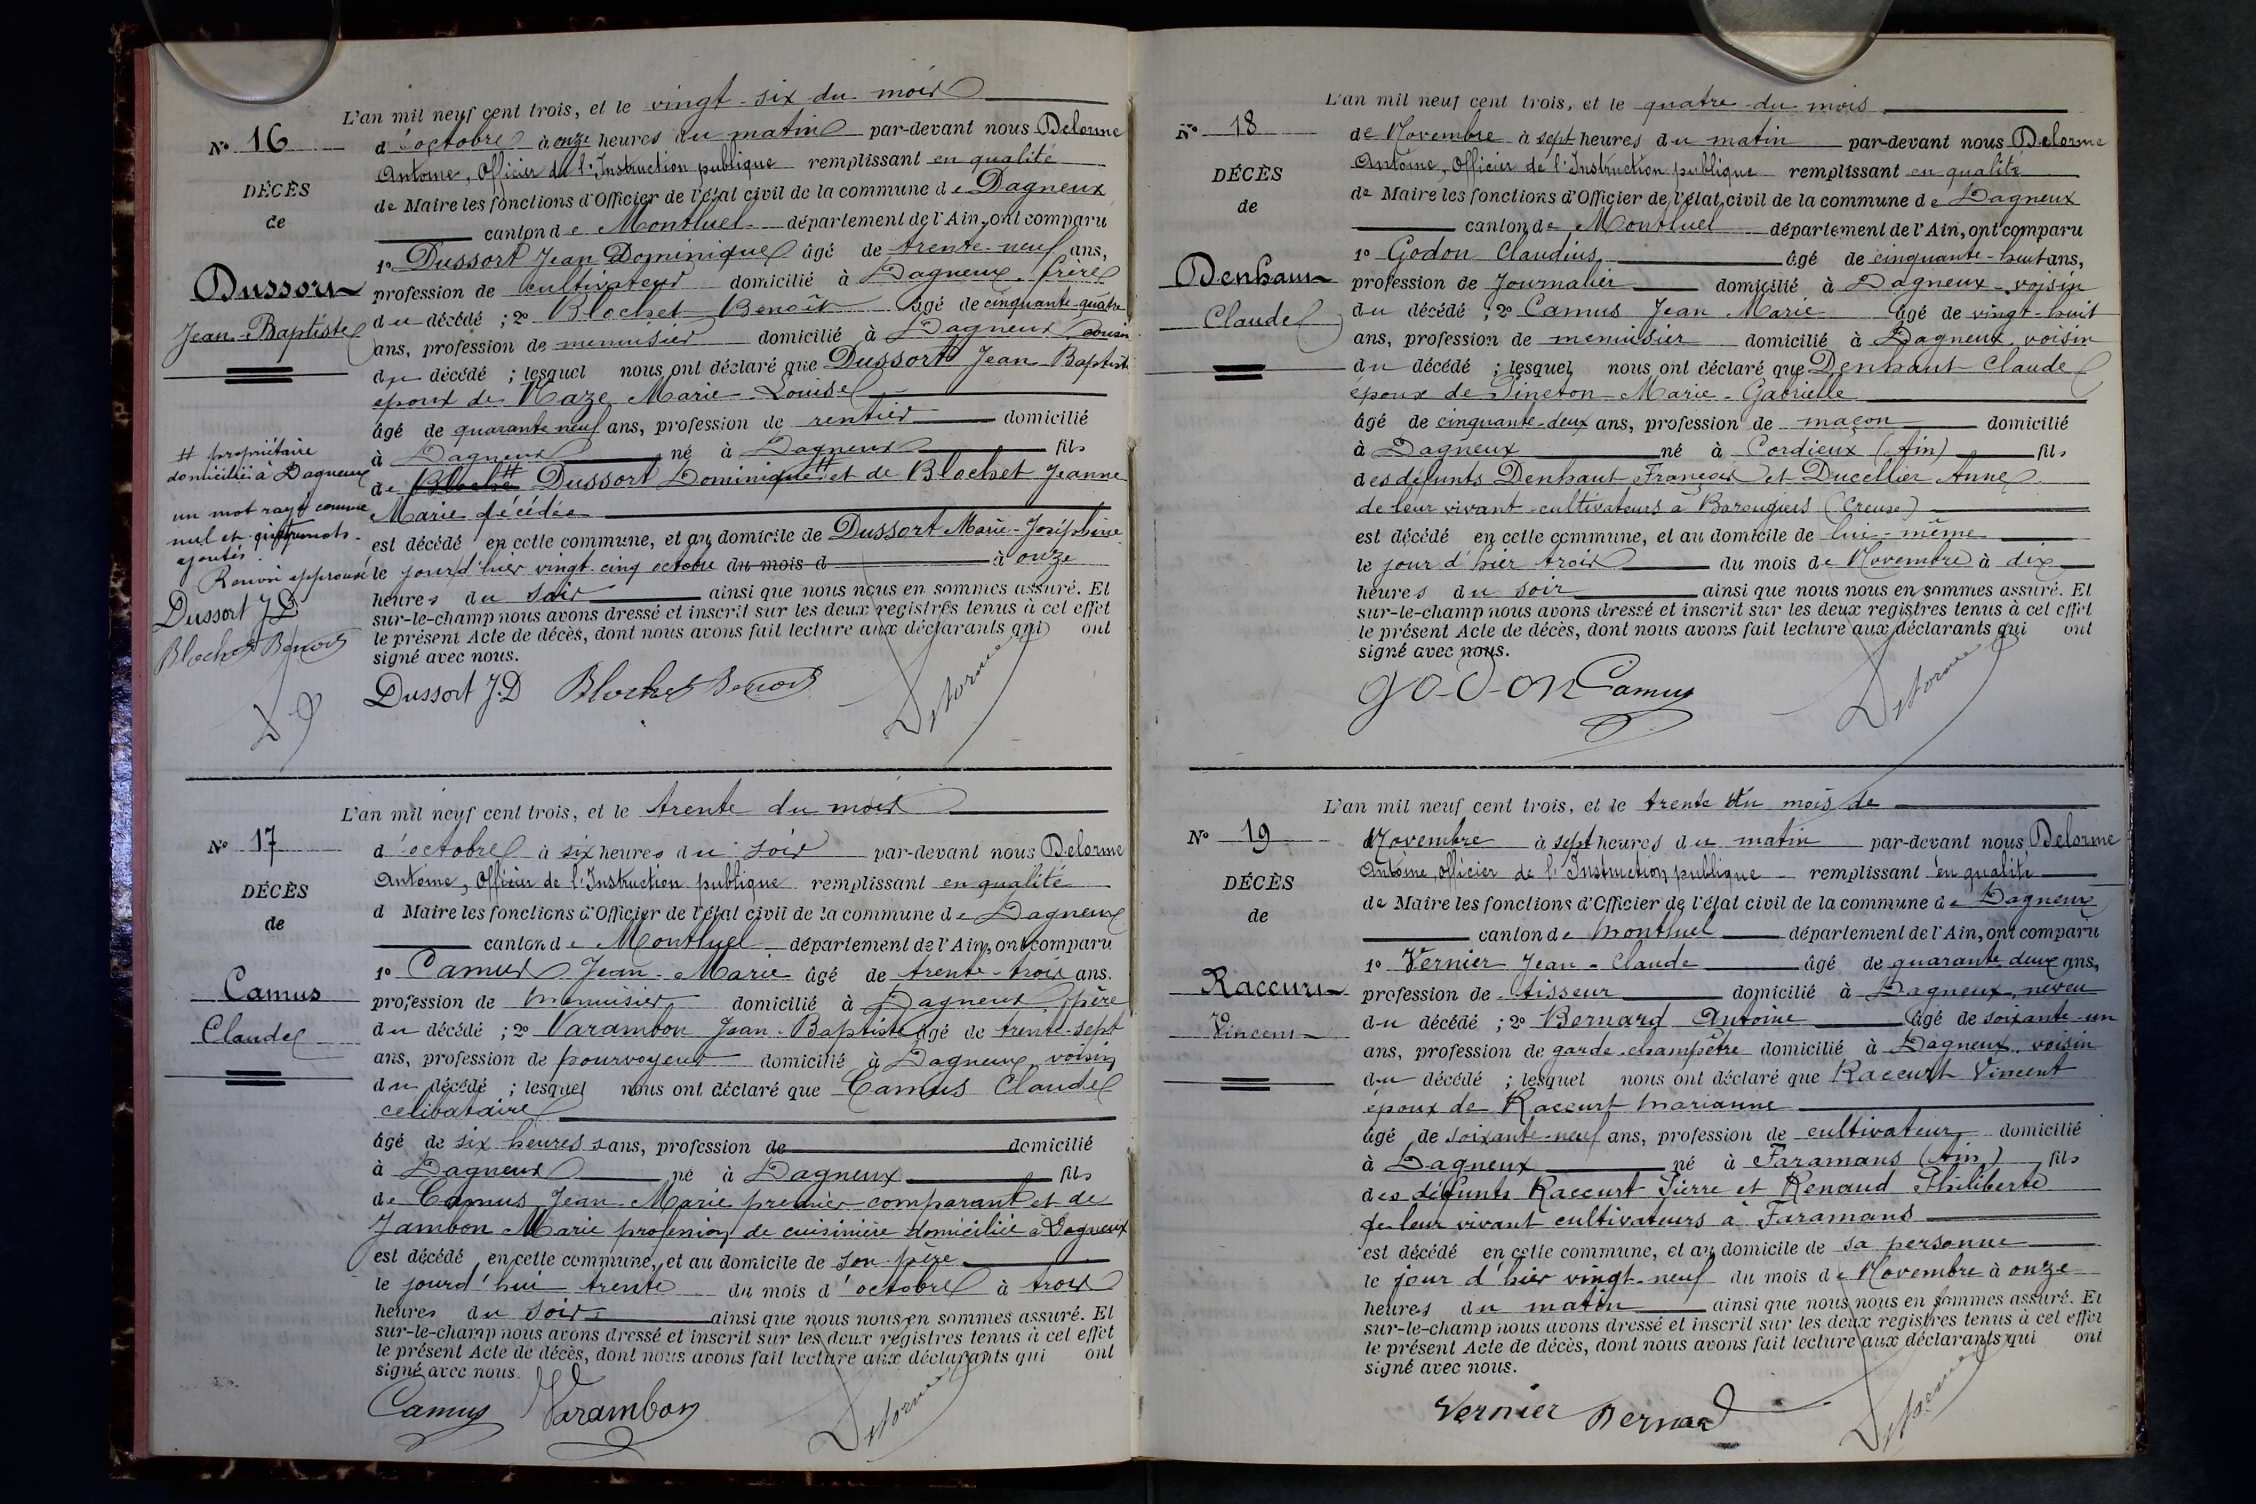 L'an mil neuf cent trois, et le vingt-six du mois
N° 16
d'octobre à onze heures du matin par-devant nous Delorme
Antoine, Officier de l'Instruction publique remplissant en qualité
DÉCÈS
de Maire les fonctions d'Officier de l'état civil de la commune de Dagneux
de
canton de Montluel département de l'Ain, ont comparu
1° Dussort Jean Dominique âgé de trente-neuf ans,
Dussort
profession de cultivateur domicilié à Dagneux, frère
du décédé ; 2° Blochet Benoît âgé de cinquante-quatre
Jean-Baptiste
ans, profession de menuisier domicilié à Dagneux cousin
du décédé ; lesquel nous ont déclaré que Dussort Jean-Baptiste
époux de Naze Marie-Louise
âgé de quarante neuf ans, profession de rentier domicilié
à Dagneux né à Dagneux fils
de Dussort Dominique # et de Blochet Jeanne
Marie décédée
est décédé en cette commune, et au domicile de Dussort Marie-Joséphine
le jour d'hier vingt-cinq octobre du mois d à onze
heures du soir ainsi que nous nous en sommes assuré. Et
sur-le-champ nous avons dressé et inscrit sur les deux registres tenus à cet effet
le présent Acte de décès, dont nous avons fait lecture aux déclarants qui ont
signé avec nous.
# propriétaire
domicilié à Dagneux
un mot rayé comme
nul et mots
ajoutés.
Renvoi approuvé
Dussort J D
Blochet Benoit
Dussort J.D Blochet Benoit Delorme
L'an mil neuf cent trois, et le trente du mois
N° 17
d'octobre à six heures du soir par-devant nous Delorme
Antoine, Officier de l'Instruction publique remplissant en qualité
DÉCÈS
d Maire les fonctions d'Officier de l'état civil de la commune de Dagneux
de
canton de Montluel département de l'Ain, ont comparu
1° Camus Jean-Marie âgé de trente-trois ans.
Camus
profession de menuisier domicilié à Dagneux père
du décédé ; 2° Varambon Jean-Baptiste âgé de trente-sept
Claude
ans, profession de pourvoyeur domicilié à Dagneux, voisin
du décédé ; lesquel nous ont déclaré que Camus Claude
celibataire
âgé de six heures ans, profession de domicilié
à Dagneux né à Dagneux fils
de Camus Jean-Marie premier comparant et de
Jambon Marie profession de cuisinière domiciliée à Dagneux
est décédé en cette commune, et au domicile de son père
le jourd'hui trente du mois d'octobre à trois
heures du soir ainsi que nous nous en sommes assuré. Et
sur-le-champ nous avons dressé et inscrit sur les deux registres tenus à cet effet
le présent Acte de décès, dont nous avons fait lecture aux déclarants qui ont
signé avec nous.
Camus Varambon Delorme
L'an mil neuf cent trois, et le quatre du mois
N° 18
de Novembre à sept heures du matin par-devant nous Delorme
Antoine, Officier de l'Instruction publique remplissant en qualité
DÉCÈS
de Maire les fonctions d'Officier de l'état civil de la commune de Dagneux
de
canton de Montluel département de l'Ain, ont comparu
1° Godon Claudius âgé de cinquante-huit ans,
Denhaut
profession de Journalier domicilié à Dagneux, voisin
du décédé ; 2° Camus Jean Marie âgé de vingt-huit
Claude
ans, profession de menuisier domicilié à Dagneux, voisin
du décédé ; lesquel nous ont déclaré que Denhaut Claude
époux de Pineton Marie-Gabrielle
âgé de cinquante-deux ans, profession de maçon domicilié
à Dagneux né à Cordieux (Ain) fils
des défunts Denhaut François et Ducellier Anne
de leur vivant cultivateurs à (Creuse)
est décédé en cette commune, et au domicile de lui-même
le jour d'hier trois du mois de Novembre à dix
heures du soir ainsi que nous nous en sommes assuré. Et
sur-le-champ nous avons dressé et inscrit sur les deux registres tenus à cet effet
le présent Acte de décès, dont nous avons fait lecture aux déclarants qui ont
signé avec nous.
GODON Camus Delorme
L'an mil neuf cent trois, et le trente du mois de
N° 19
Novembre à sept heures du matin par-devant nous Delorme
Antoine, Officier de l'Instruction publique remplissant en qualité
DÉCÈS
de Maire les fonctions d'Officier de l'état civil de la commune de Dagneux
de
canton de Montluel département de l'Ain, ont comparu
1° Vernier Jean-Claude âgé de quarante deux ans,
Raccurt
profession de tisseur domicilié à Dagneux, neveu
Vincent
du décédé ; 2° Bernard Antoine âgé de soixante-un
ans, profession de garde-champêtre domicilié à Dagneux, voisin
du décédé ; lesquel nous ont déclaré que Raccurt Vincent
époux de Raccurt Marianne
âgé de soixante-neuf ans, profession de cultivateur domicilié
à Dagneux né à Faramans (Ain) fils
des défunts Raccurt Pierre et Renaud Philiberte
de leur vivant cultivateurs à Faramans
est décédé en cette commune, et au domicile de sa personne
le jour d'hier vingt-neuf du mois de Novembre à onze
heures du matin ainsi que nous nous en sommes assuré. Et
sur-le-champ nous avons dressé et inscrit sur les deux registres tenus à cet effet
le présent Acte de décès, dont nous avons fait lecture aux déclarants qui ont
signé avec nous.
Vernier Bernard Delorme